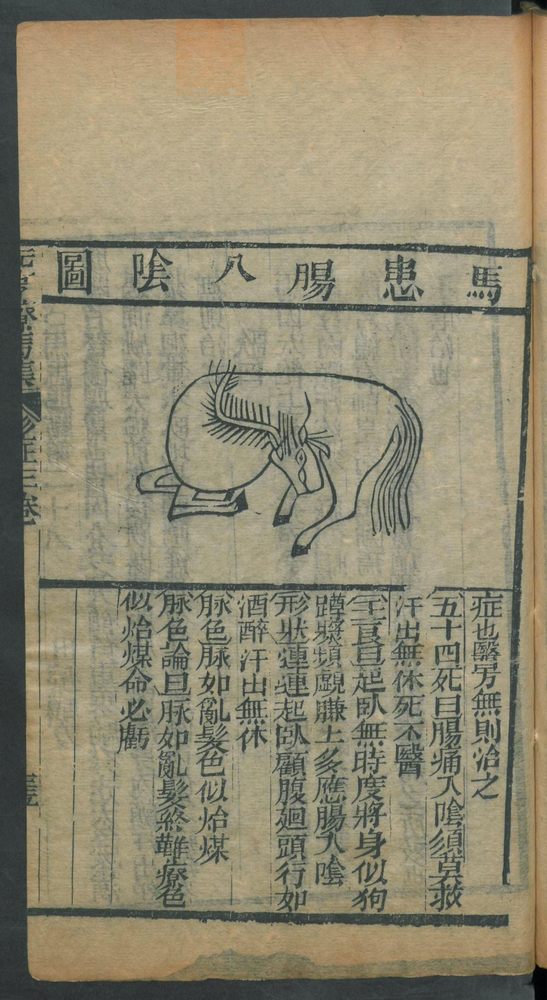 馬患腸入陰圖
症也醫另無則治之
五十四死曰腸痛入陰須莫救
汗出無休死不醫
王良曰起臥無時度將身似狗
蹲頻頻覷膁上多應腸入陰
形狀連連起臥顧腹廻頭行如
酒醉汗出無休
脉色脉如亂髮色似炲煤
脉色論曰脉如亂髮終難療色
似炲煤命必虧
元亨療馬集
卷